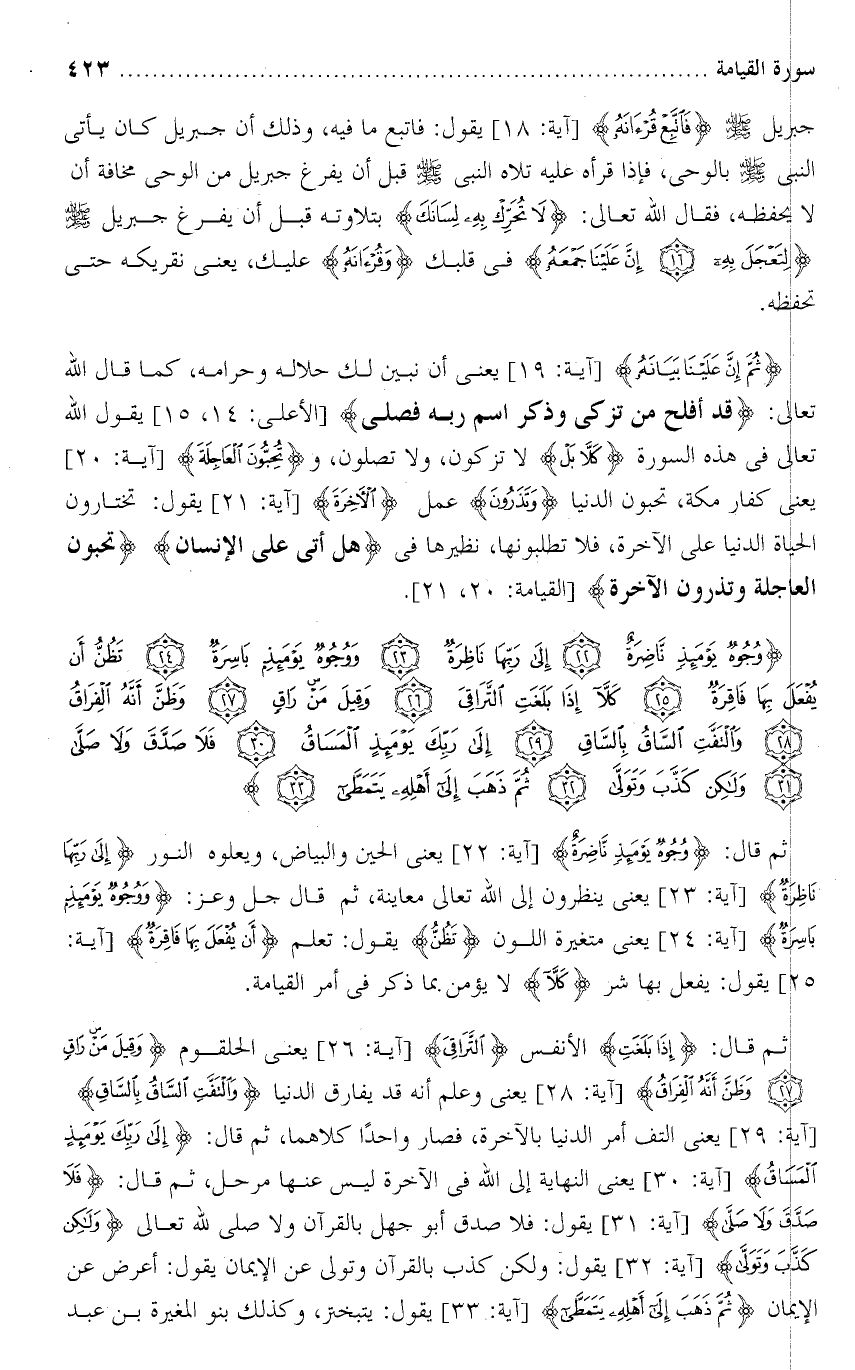 سورة القيامة ........................................................................ ٤٢٣
جبريل ﷺ ﴿فَٱتَّبِعْ قُرْءَانَهُۥ﴾ [آية: ١٨] يقول: فاتبع ما فيه، وذلك أن جبريل كان يأتى
النبى ﷺ بالوحى، فإذا قرأه عليه تلاه النبى ﷺ قبل أن يفرغ جبريل من الوحى مخافة أن
لا يحفظه، فقال الله تعالى: ﴿لَا تُحَرِّكْ بِهِۦ لِسَانَكَ﴾ بتلاوته قبل أن يفرغ جبريل ﷺ
﴿لِتَعْجَلَ بِهِۦٓ ١٦ إِنَّ عَلَيْنَا جَمْعَهُۥ﴾ فى قلبك ﴿وَقُرْءَانَهُۥ﴾ عليك، يعنى نقريكه حتى
تحفظه.
﴿ثُمَّ إِنَّ عَلَيْنَا بَيَانَهُۥ﴾ [آية: ١٩] يعنى أن نبين لك حلاله وحرامه، كما قال الله
تعالى: ﴿قد أفلح من تزكى وذكر اسم ربه فصلى﴾ [الأعلى: ١٤، ١٥] يقول الله
تعالى فى هذه السورة ﴿كَلَّا بَلْ﴾ لا تزكون، ولا تصلون، و﴿تُحِبُّونَ ٱلْعَاجِلَةَ﴾ [آية: ٢٠]
يعنى كفار مكة، تحبون الدنيا ﴿وَتَذَرُونَ﴾ عمل ﴿ٱلْأَخِرَةَ﴾ [آية: ٢١] يقول: تختارون
الحياة الدنيا على الآخرة، فلا تطلبونها، نظيرها فى ﴿هل أتى على الإنسان﴾ ﴿تحبون
العاجلة وتذرون الآخرة﴾ [القيامة: ٢٠، ٢١].
﴿وُجُوهٌ يَوْمَئِذٍ نَّاضِرَةٌ ٢٢ إِلَىٰ رَبِّهَا نَاظِرَةٌ ٢٣ وَوُجُوهٌ يَوْمَئِذٍۭ بَاسِرَةٌ ٢٤ تَظُنُّ أَن
يُفْعَلَ بِهَا فَاقِرَةٌ ٢٥ كَلَّآ إِذَا بَلَغَتِ ٱلتَّرَاقِىَ ٢٦ وَقِيلَ مَنْ ۜ رَاقٍ ٢٧ وَظَنَّ أَنَّهُ ٱلْفِرَاقُ
٢٨ وَٱلْتَفَّتِ ٱلسَّاقُ بِٱلسَّاقِ ٢٩ إِلَىٰ رَبِّكَ يَوْمَئِذٍ ٱلْمَسَاقُ ٣٠ فَلَا صَدَّقَ وَلَا صَلَّىٰ
٣١ وَلَٰكِن كَذَّبَ وَتَوَلَّىٰ ٣٢ ثُمَّ ذَهَبَ إِلَىٰٓ أَهْلِهِۦ يَتَمَطَّىٰٓ ٣٣ ﴾
ثم قال: ﴿وُجُوهٌ يَوْمَئِذٍ نَّاضِرَةٌ﴾ [آية: ٢٢] يعنى الحين والبياض، ويعلوه النور ﴿إِلَىٰ رَبِّهَا
نَاظِرَةٌ﴾ [آية: ٢٣] يعنى ينظرون إلى الله تعالى معاينة، ثم قال جل وعز: ﴿وَوُجُوهٌ يَوْمَئِذٍۭ
بَاسِرَةٌ﴾ [آية: ٢٤] يعنى متغيرة اللون ﴿تَظُنُّ﴾ يقول: تعلم ﴿أَن يُفْعَلَ بِهَا فَاقِرَةٌ﴾ [آية:
٢٥] يقول: يفعل بها شر ﴿كَلَّآ﴾ لا يؤمن بما ذكر فى أمر القيامة.
ثم قال: ﴿إِذَا بَلَغَتِ﴾ الأنفس ﴿ٱلتَّرَاقِىَ﴾ [آية: ٢٦] يعنى الحلقوم ﴿وَقِيلَ مَنْ ۜ رَاقٍ
٢٧ وَظَنَّ أَنَّهُ ٱلْفِرَاقُ﴾ [آية: ٢٨] يعنى وعلم أنه قد يفارق الدنيا ﴿وَٱلْتَفَّتِ ٱلسَّاقُ بِٱلسَّاقِ﴾
[آية: ٢٩] يعنى التف أمر الدنيا بالآخرة، فصار واحدًا كلاهما، ثم قال: ﴿إِلَىٰ رَبِّكَ يَوْمَئِذٍ
ٱلْمَسَاقُ﴾ [آية: ٣٠] يعنى النهاية إلى الله فى الآخرة ليس عنها مرحل، ثم قال: ﴿فَلَا
صَدَّقَ وَلَا صَلَّىٰ﴾ [آية: ٣١] يقول: فلا صدق أبو جهل بالقرآن ولا صلى لله تعالى ﴿وَلَٰكِن
كَذَّبَ وَتَوَلَّىٰ﴾ [آية: ٣٢] يقول: ولكن كذب بالقرآن وتولى عن الإيمان يقول: أعرض عن
الإيمان ﴿ثُمَّ ذَهَبَ إِلَىٰٓ أَهْلِهِۦ يَتَمَطَّىٰٓ﴾ [آية: ٣٣] يقول: يتبختر، وكذلك بنو المغيرة بن عبد